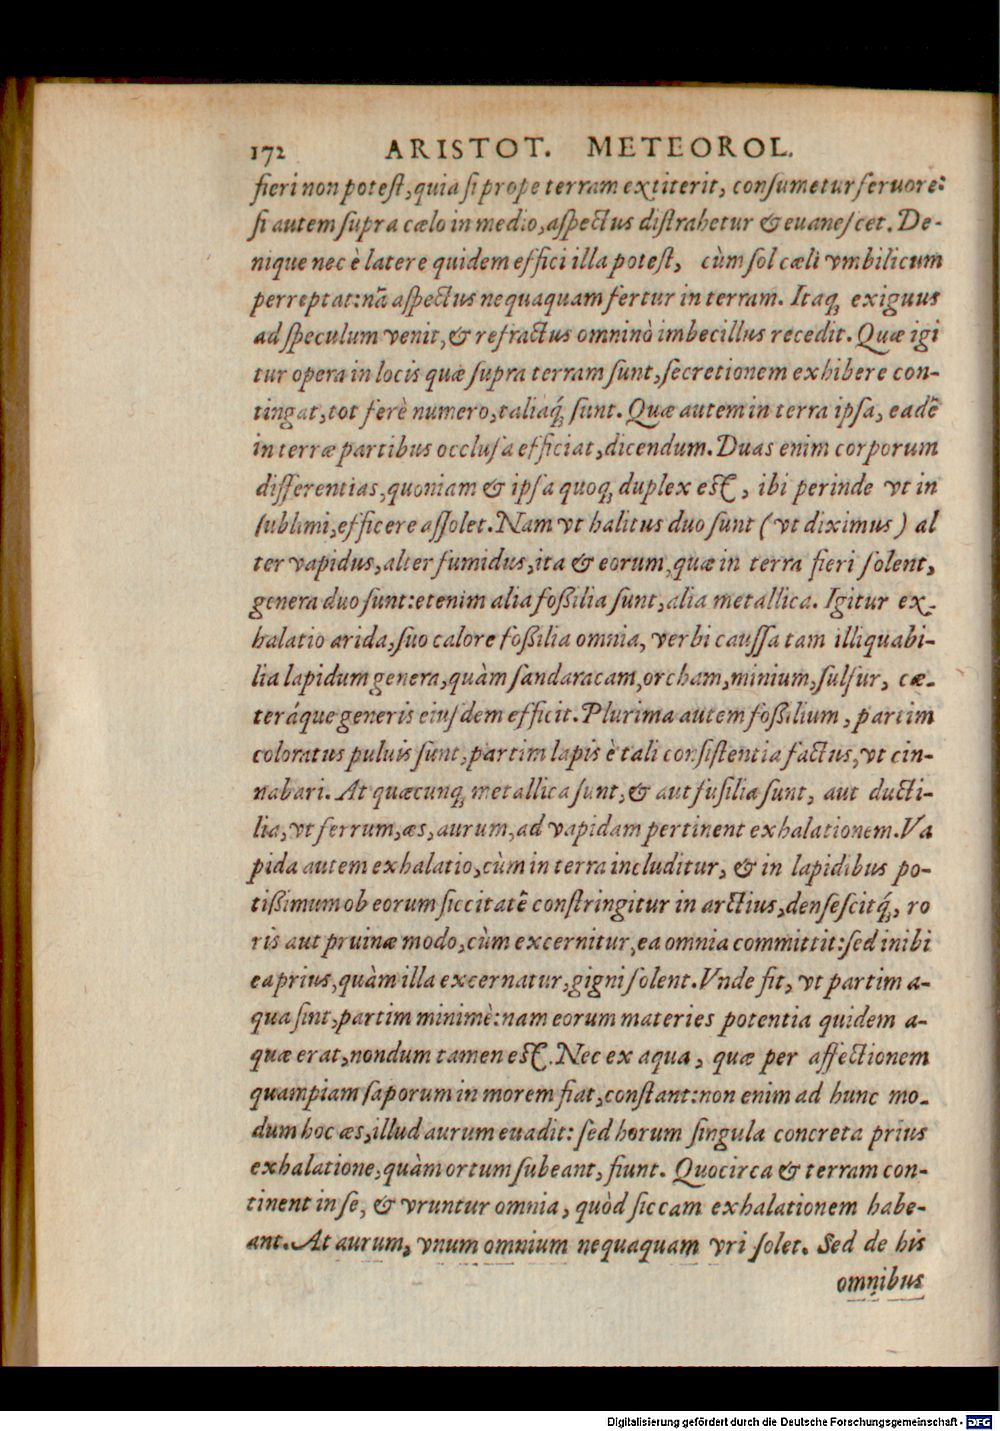 172 ARISTOT. METEOROL.
fieri non potest, quia si prope terram extiterit, consumetur feruore:
si autem supra cælo in medio, aspectus distrahetur & euanescet. De-
nique nec è latere quidem effici illa potest, cùm sol cæli vmbilicum
perreptat: nā aspectus nequaquam fertur in terram. Itaq; exiguus
ad speculum venit, & refractus omninò imbecillus recedit. Quæ igi
tur opera in locis quæ supra terram sunt, secretionem exhibere con-
tingat, tot ferè numero, taliaq́; sunt. Quæ autem in terra ipsa, eadē
in terræ partibus occlusa efficiat, dicendum. Duas enim corporum
differentias, quoniam & ipsa quoq; duplex est, ibi perinde vt in
sublimi, efficere assolet. Nam vt halitus duo sunt (vt diximus) al
ter vapidus, alter fumidus, ita & eorum, quæ in terra fieri solent,
genera duo sunt: etenim alia foßilia sunt, alia metallica. Igitur ex-
halatio arida, suo calore foßilia omnia, verbi caussa tam illiquabi-
lia lapidum genera, quàm sandaracam, orcham, minium, sulfur, cæ-
teráque generis eiusdem efficit. Plurima autem foßilium, partim
coloratus puluis sunt, partim lapis è tali consistentia factus, vt cin-
nabari. At quæcunq; metallica sunt, & aut fusilia sunt, aut ducti-
lia, vt ferrum, æs, aurum, ad vapidam pertinent exhalationem. Va
pida autem exhalatio, cùm in terra includitur, & in lapidibus po-
tißimum ob eorum siccitatē constringitur in arctius, densescitq́;, ro
ris aut pruinæ modo, cùm excernitur, ea omnia committit: sed inibi
ea prius, quàm illa excernatur, gigni solent. Vnde fit, vt partim a-
qua sint, partim minimè: nam eorum materies potentia quidem a-
quæ erat, nondum tamen est. Nec ex aqua, quæ per affectionem
quampiam saporum in morem fiat, constant: non enim ad hunc mo-
dum hoc æs, illud aurum euadit: sed horum singula concreta prius
exhalatione, quàm ortum subeant, fiunt. Quocirca & terram con-
tinent in se, & vruntur omnia, quòd siccam exhalationem habe-
ant. At aurum, vnum omnium nequaquam vri solet. Sed de his
omnibus
Digitalisierung gefördert durch die Deutsche Forschungsgemeinschaft - DFG